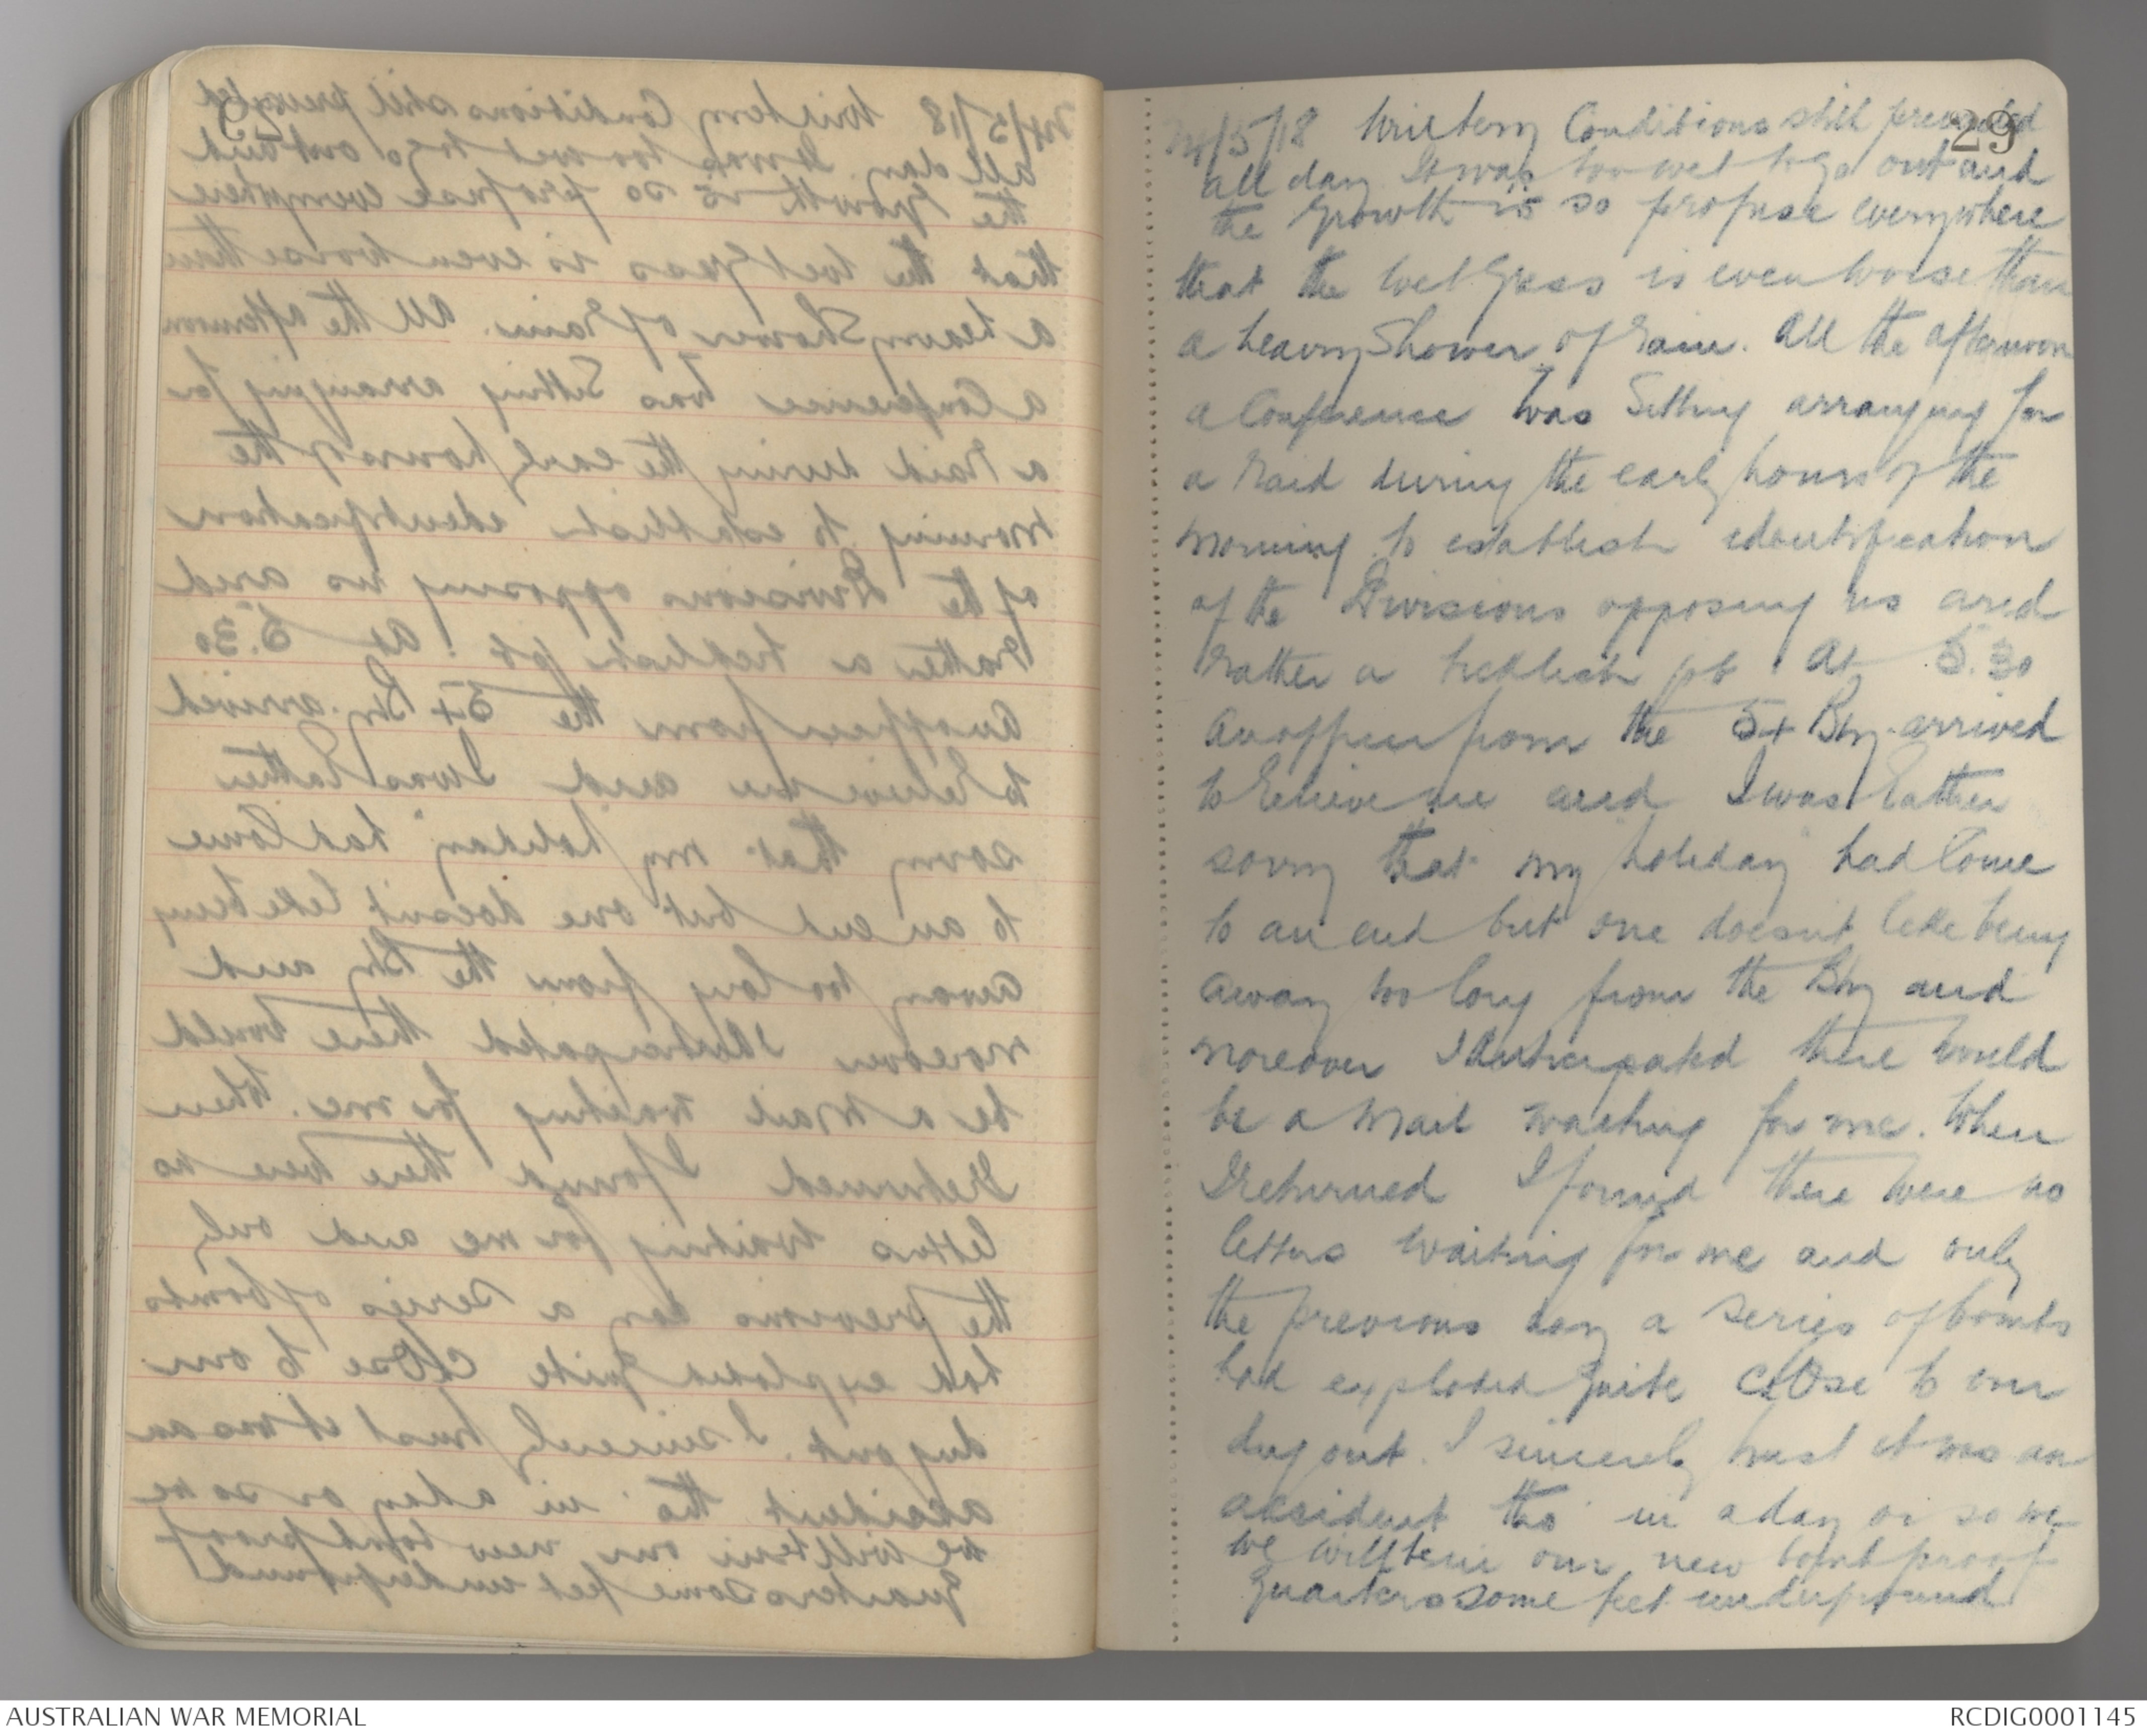 29
14/5/18 Wintery Conditions still prevailed
all day. It was too wet to go out and
the growth is so profuse everywhere
that the wet grass is even worse than
a heavy shower of rain. All the afternoon
a Conference was Sitting arranging for
a raid during the early hours of the
morning to establish identification
of the Divisions opposing us and
rather a ticklish job. At 5.30
an officer from the 54 Bty. arrived
to relieve me and I was rather
sorry that my "holiday" had Come
to an end but one doesn't like being
away too long from the Bty and
moreover I Anticipated there would
be a mail waiting for me. When
I returned I found there were no
letters waiting for me and only
the previous day a series of bombs
had exploded quite close to our
dug out. I sincerely trust it was an
accident tho' in a day or so we
we will be in our new bomb proof
quarters some feet underground
AUSTRALIAN WAR MEMORIAL
RCDIG0001145